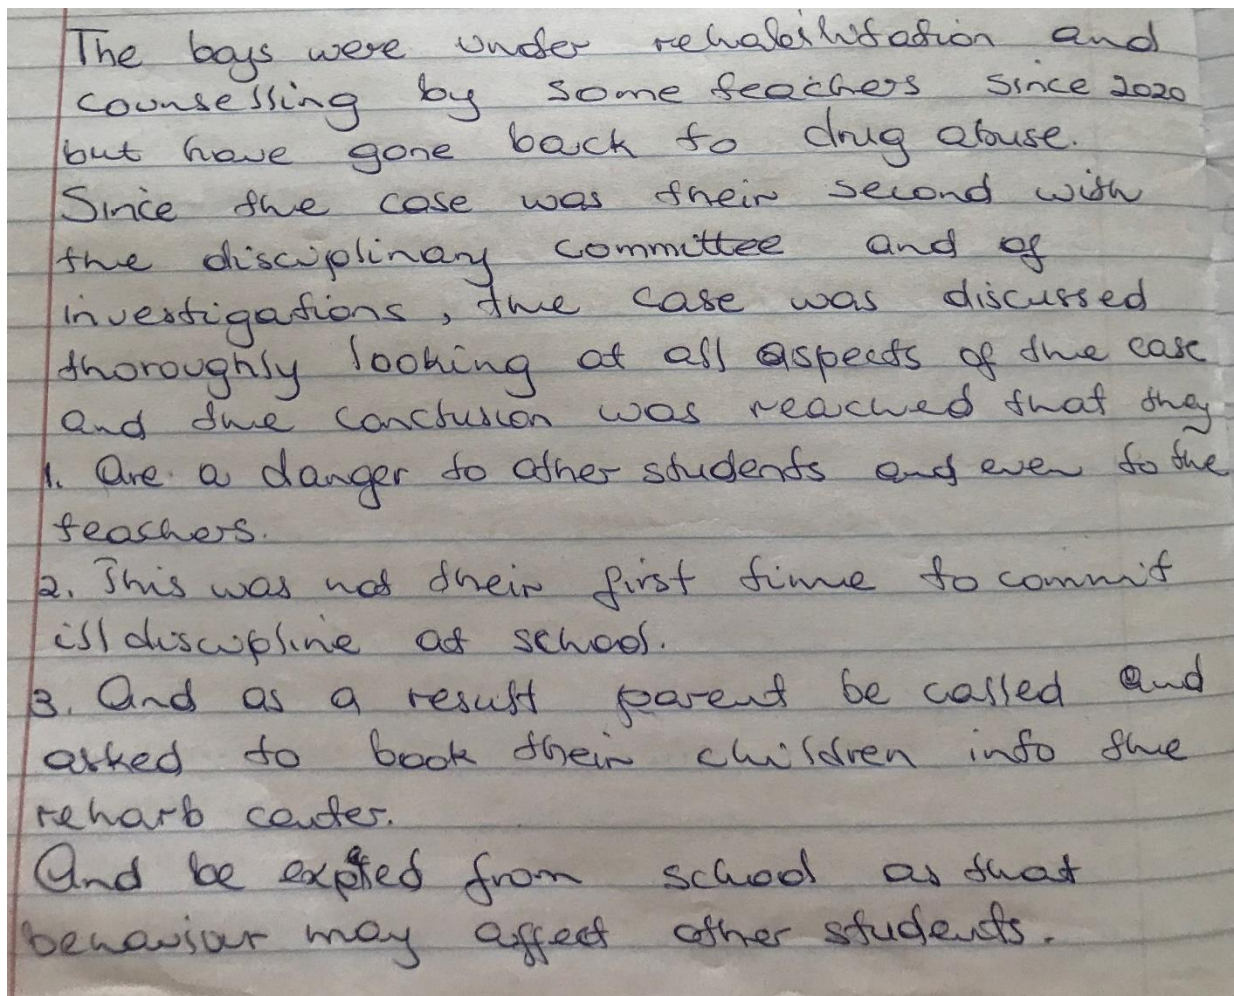 The boys were under rehabilitation and
counselling by some teachers since 2020
but have gone back to drug abuse.
Since the case was their second with
the disciplinary committee and of
investigations, the case was discussed
thoroughly looking at all aspects of the case
and the conclusion was reached that they
1. Are a danger to other students and even to the
teachers.
2. This was not their first time to commit
ill discipline at school.
3. And as a result parent be called and
asked to book their children into the
reharb center.
And be from school as that
behaviour may affect other students.